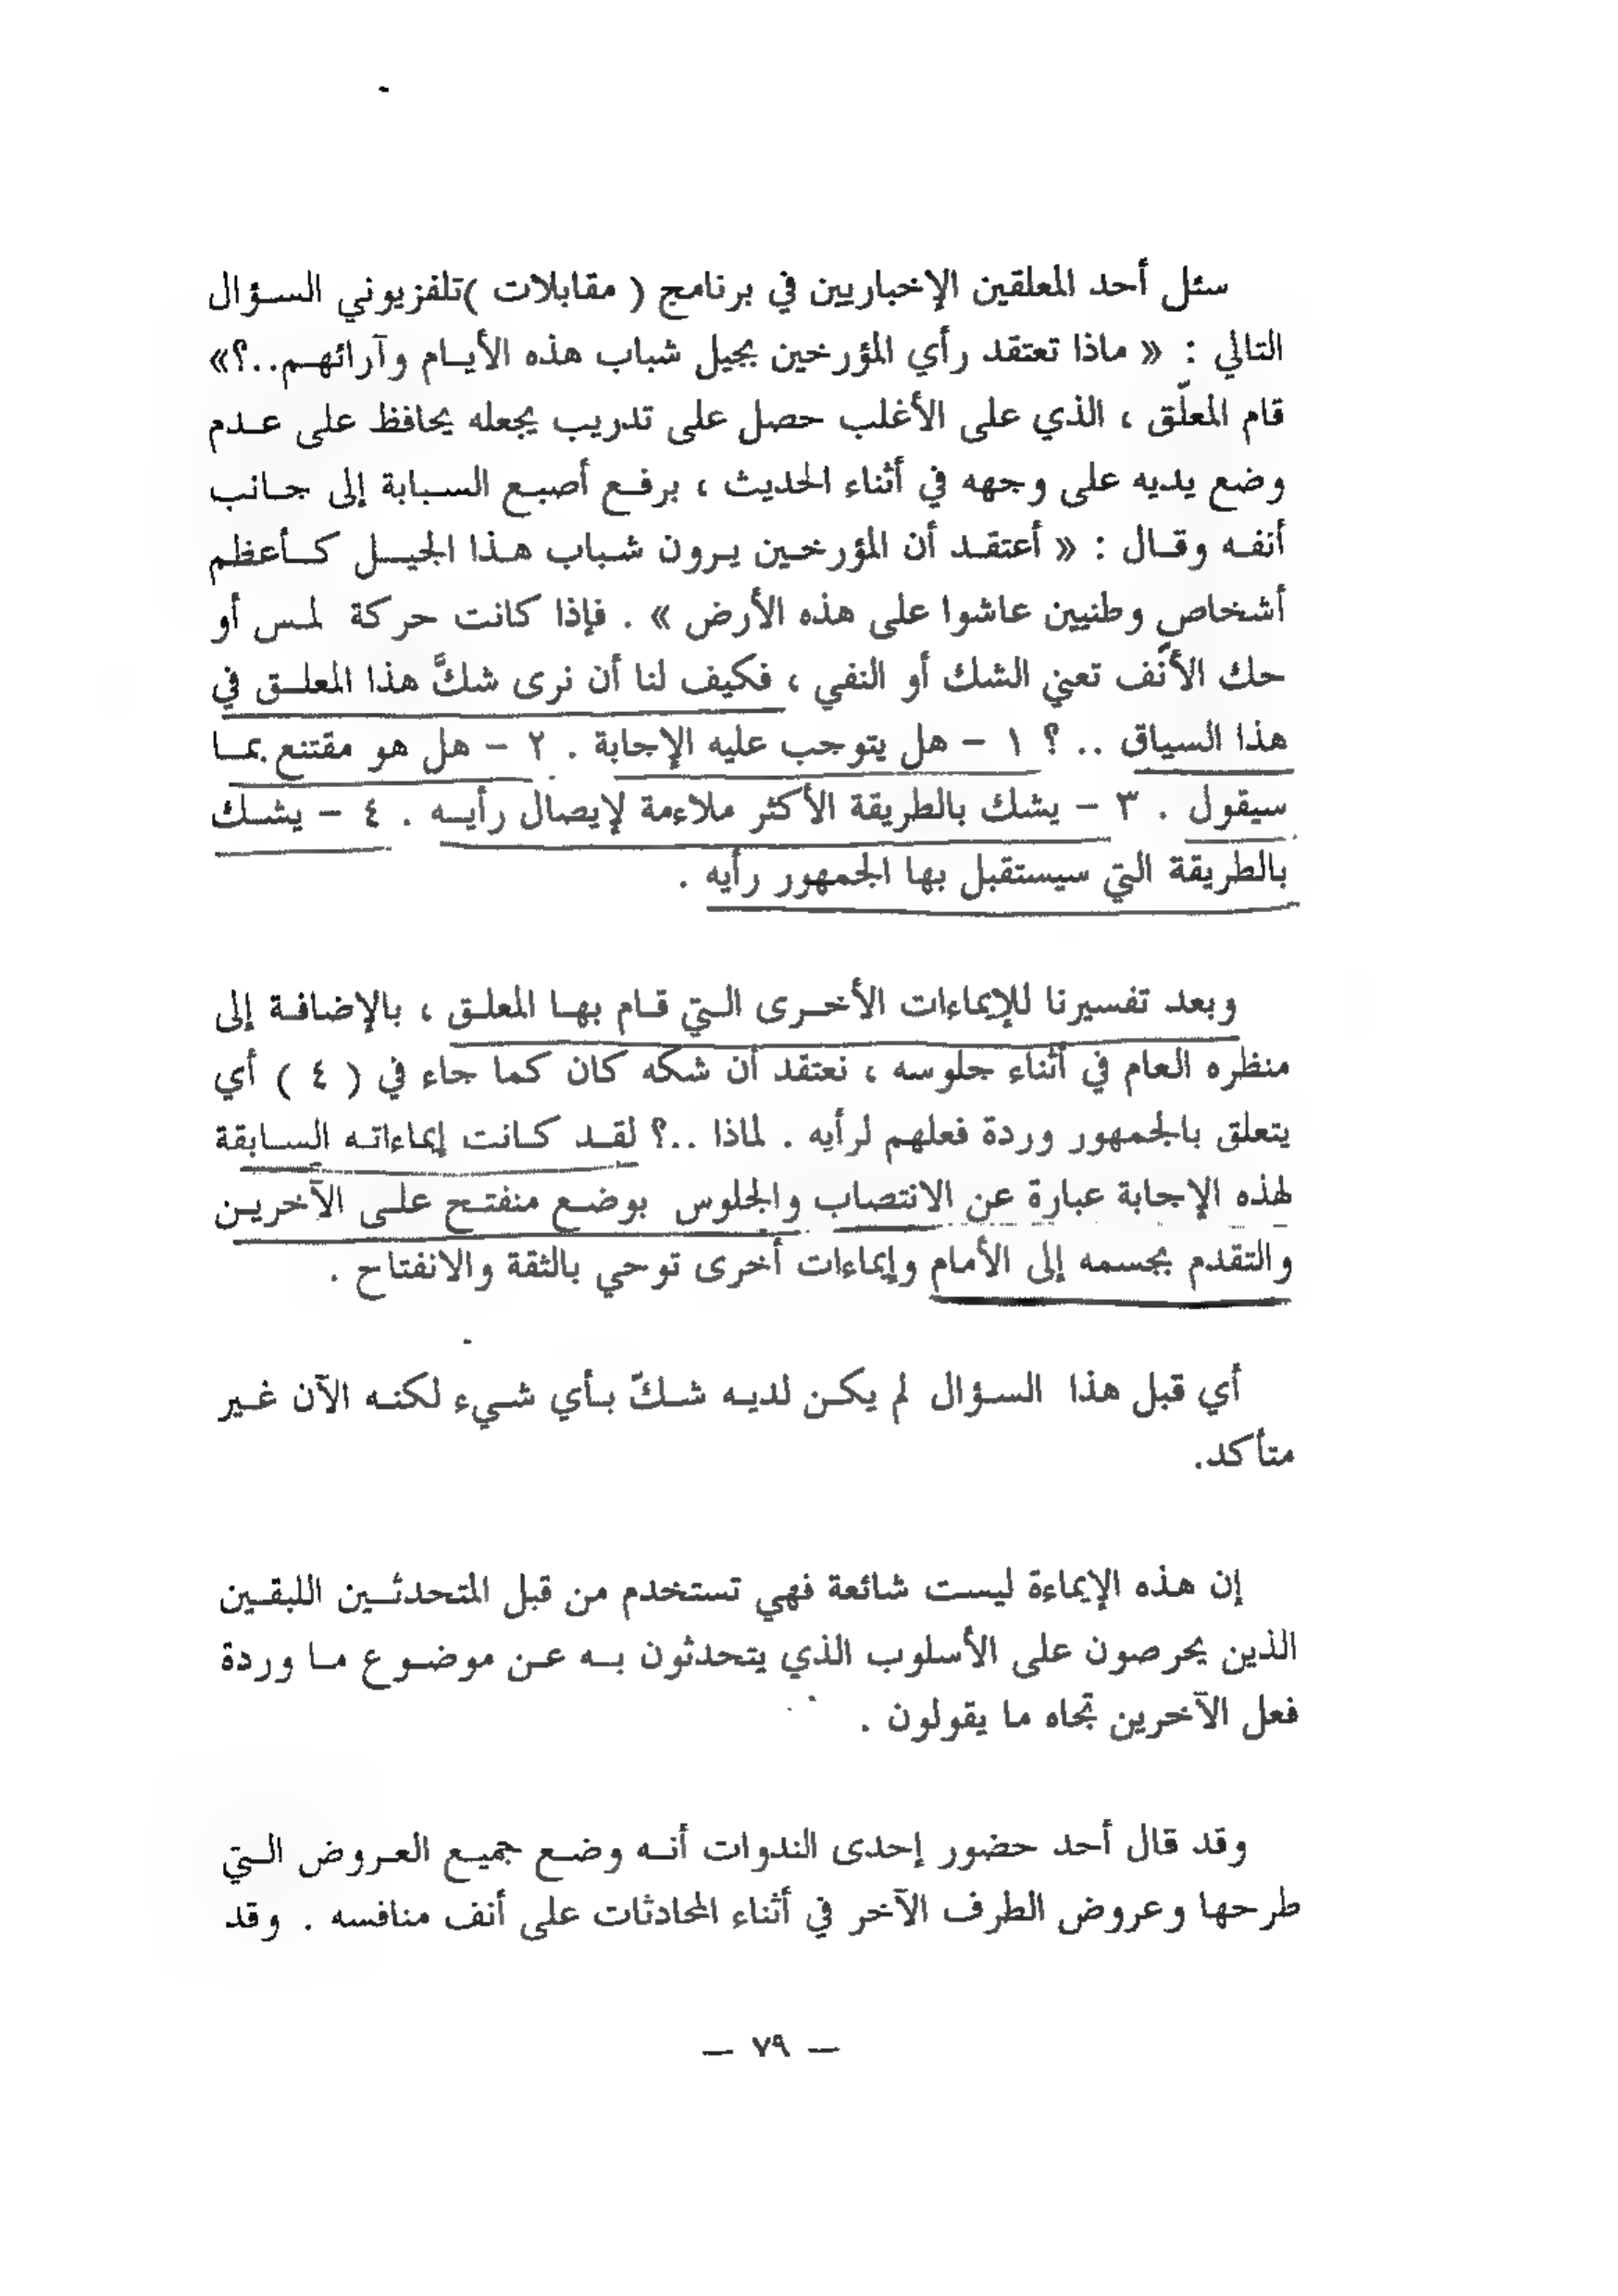 سئل أحد المعلقين الإخباريين في برنامج ( مقابلات )تلفزيوني السؤال
التالي : « ماذا تعتقد رأي المؤرخين بجيل شباب هذه الأيام وآرائهم..؟»
قام المعلّق ، الذي على الأغلب حصل على تدريب يجعله يحافظ على عدم
وضع يديه على وجهه في أثناء الحديث ، برفع أصبع السبابة إلى جانب
أنفه وقال : « أعتقد أن المؤرخين يرون شباب هذا الجيل كأعظم
أشخاص وطنيين عاشوا على هذه الأرض » . فإذا كانت حركة لمس أو
حك الأنف تعني الشك أو النفي ، فكيف لنا أن نرى شكَّ هذا المعلق في
هذا السياق .. ؟ ١ - هل يتوجب عليه الإجابة . ٢ - هل هو مقتنع بما
سيقول . ٣ - يشك بالطريقة الأكثر ملاءمة لإيصال رأيه . ٤ - يشك
بالطريقة التي سيستقبل بها الجمهور رأيه .
وبعد تفسيرنا للإيماءات الأخرى التي قام بها المعلق ، بالإضافة إلى
منظره العام في أثناء جلوسه ، نعتقد أن شكه كان كما جاء في ( ٤ ) أي
يتعلق بالجمهور وردة فعلهم لرأيه . لماذا ..؟ لقد كانت إيماءاته السابقة
لهذه الإجابة عبارة عن الانتصاب والجلوس بوضع منفتح على الآخرين
والتقدم بجسمه إلى الأمام وإيماءات أخرى توحي بالثقة والانفتاح .
أي قبل هذا السؤال لم يكن لديه شكّ بأي شيء لكنه الآن غير
متأكد.
إن هذه الإيماءة ليست شائعة فهي تستخدم من قبل المتحدثين اللبقين
الذين يحرصون على الأسلوب الذي يتحدثون به عن موضوع ما وردة
فعل الآخرين تجاه ما يقولون .
وقد قال أحد حضور إحدى الندوات أنه وضع جميع العروض التي
طرحها وعروض الطرف الآخر في أثناء المحادثات على أنف منافسه . وقد
— ٧٩ —